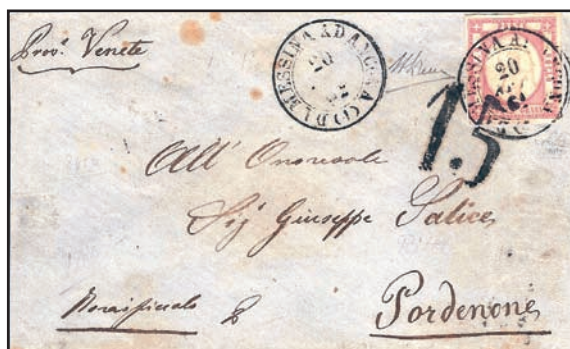 Prov. Venete
DA MESSINA AD ANCONA (1)
20
MESSINA A
20
15
All' Onorevole
Sig Giuseppe Salice
Pordenone